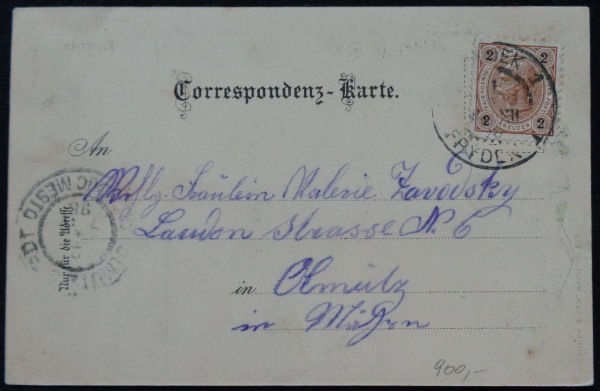 2 2
KREUZER
2 2
FRYDEK
Correspondenz-Karte.
An
Wohlg. Fräulein Valerie Zavodsky
Laudon Strasse N. 6
in Olmütz
in Mähren
Nur für die Adresse
MESTO
900,-